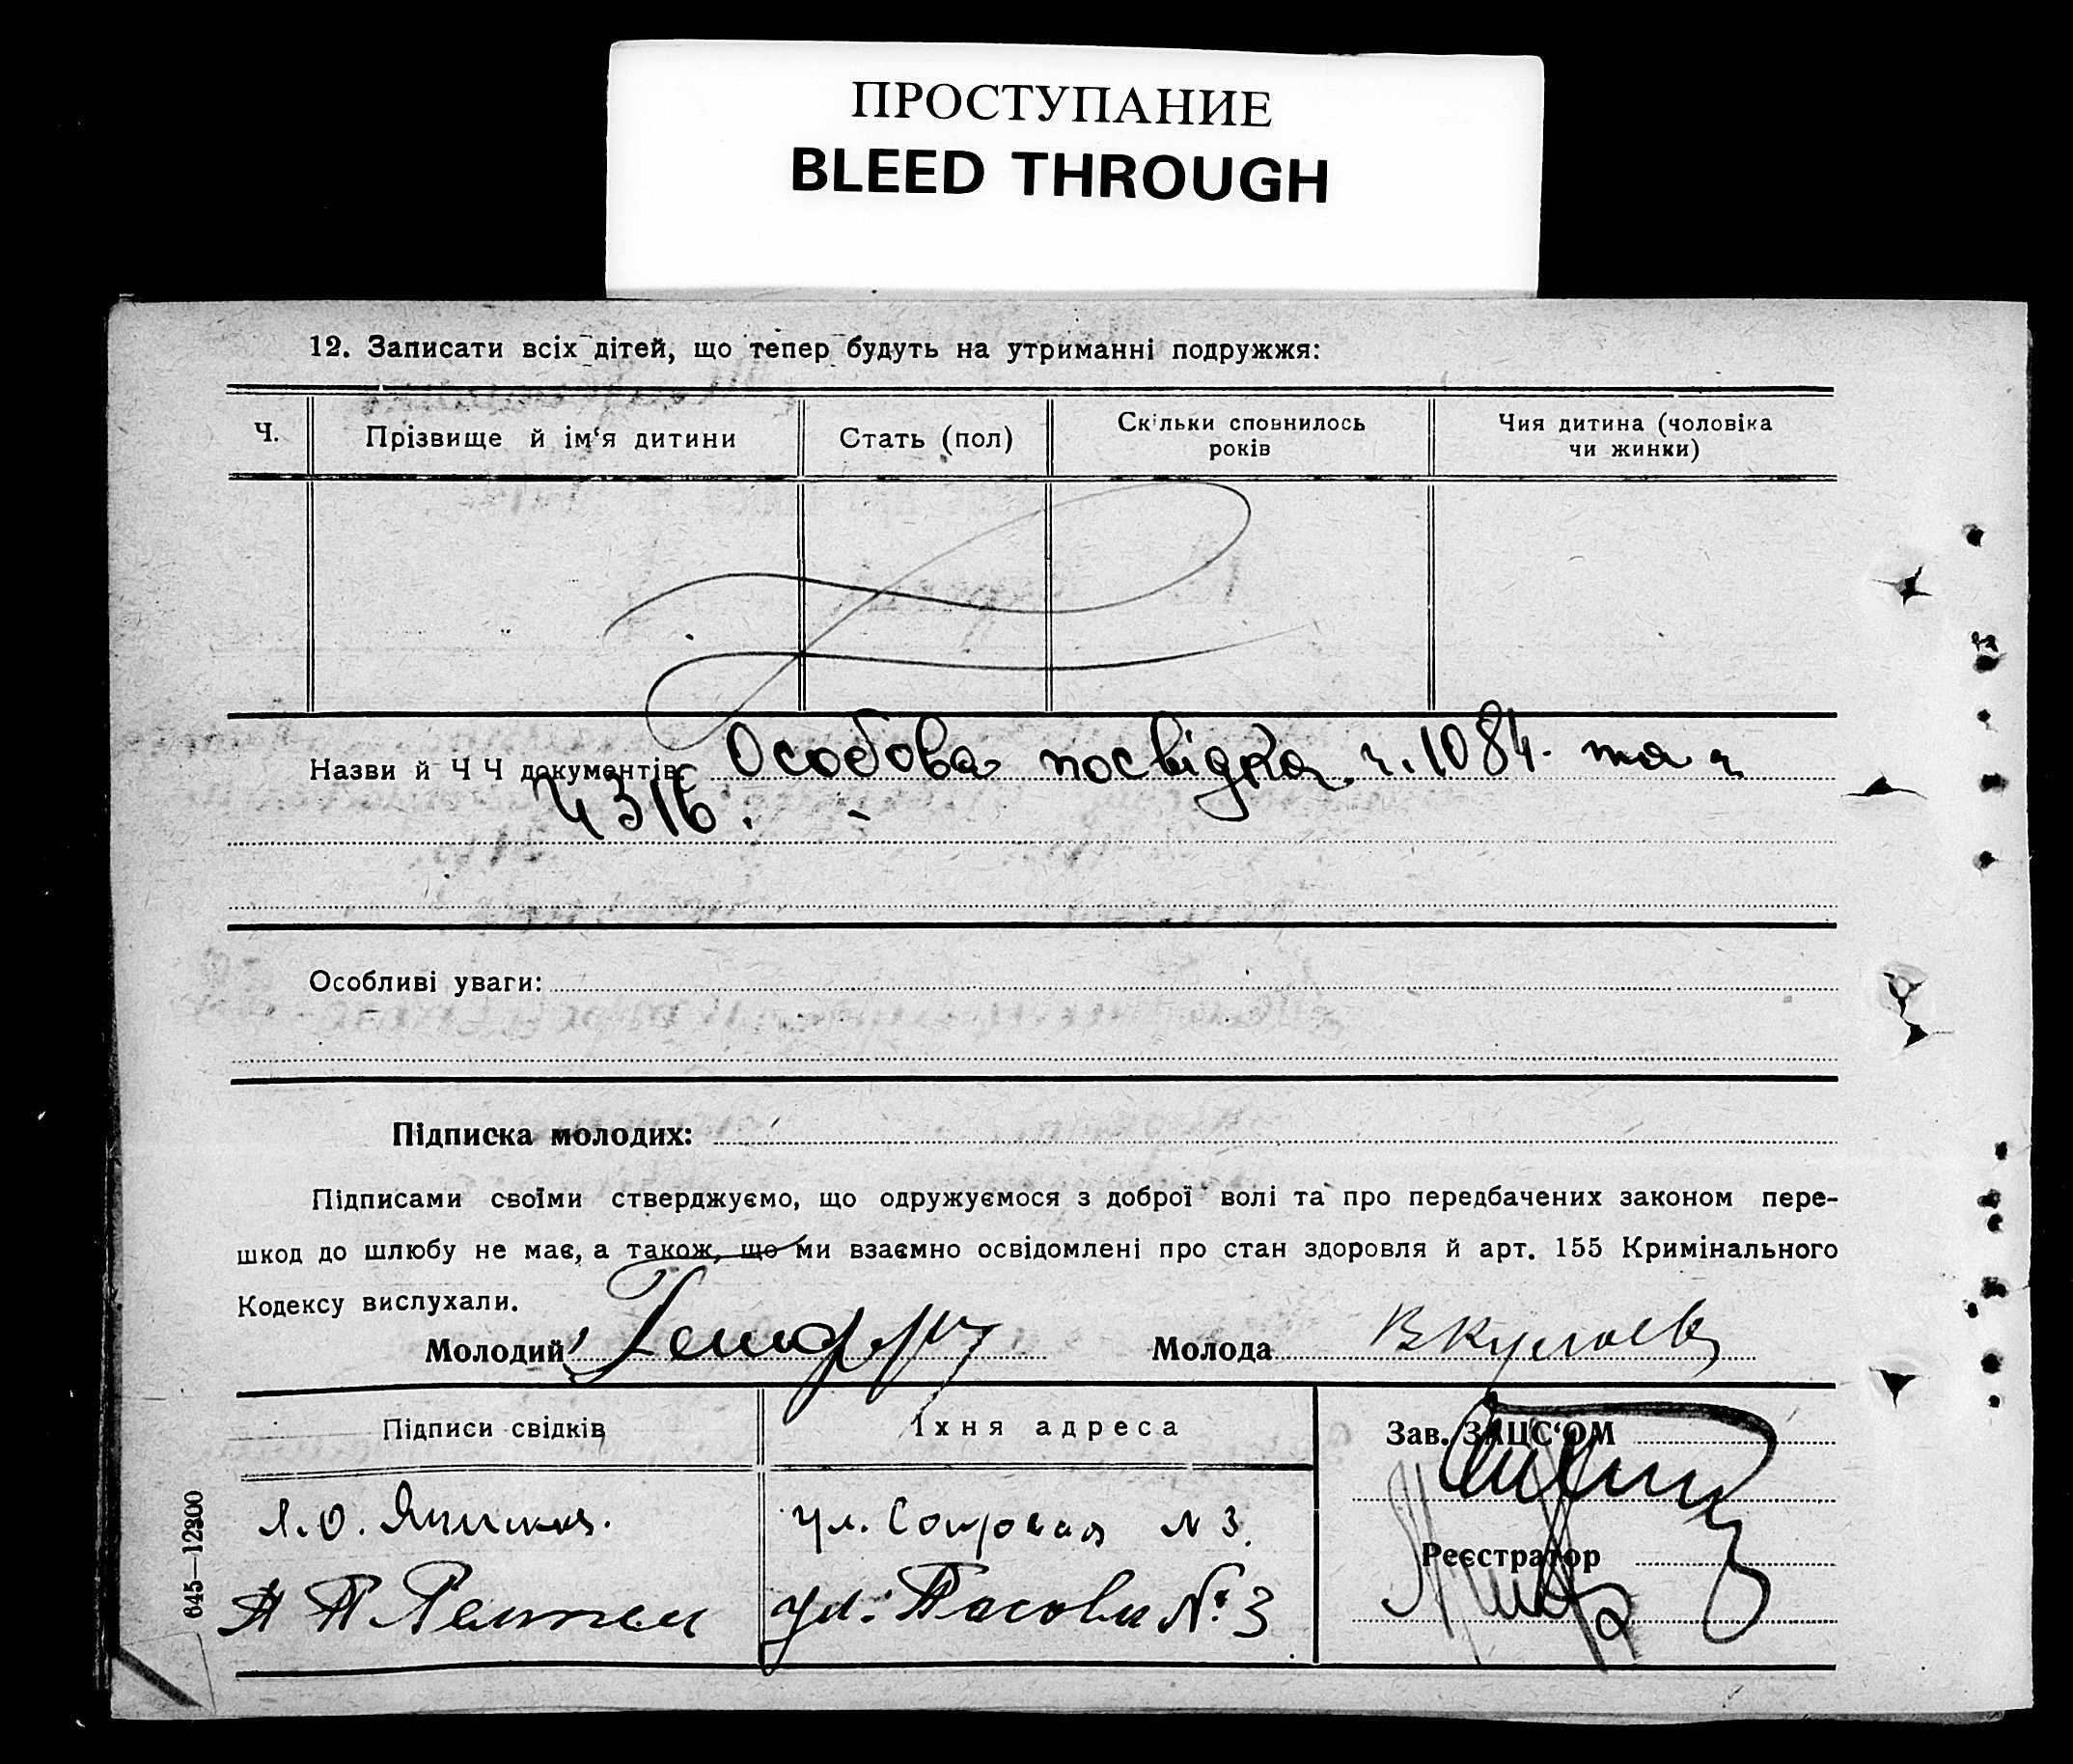 ПРОСТУПАНИЕ
BLEED THROUGH
12. Записати всіх дітей, що тепер будуть на утриманні подружжя:
Ч.
Прізвище й ім‘я дитини
Стать (пол)
Скільки сповнилось
років
Чия дитина (чоловіка
чи жинки)
Назви й Ч Ч документів: Особова посвідка ч. 1084 та ч
4316.
Особливі уваги:
Підписка молодих:
Підписами своїми стверджуємо, що одружуємося з доброї волі та про передбачених законом пере-
шкод до шлюбу не має, а також, що ми взаємно освідомлені про стан здоровля й арт. 155 Кримінального
Кодексу вислухали.
Молодий
Молода
Підписи свідків
Їхня адреса
Зав. ЗАЦС‘ОМ
ул. № 3.
Реєстратор
ул. № 3
645—12300